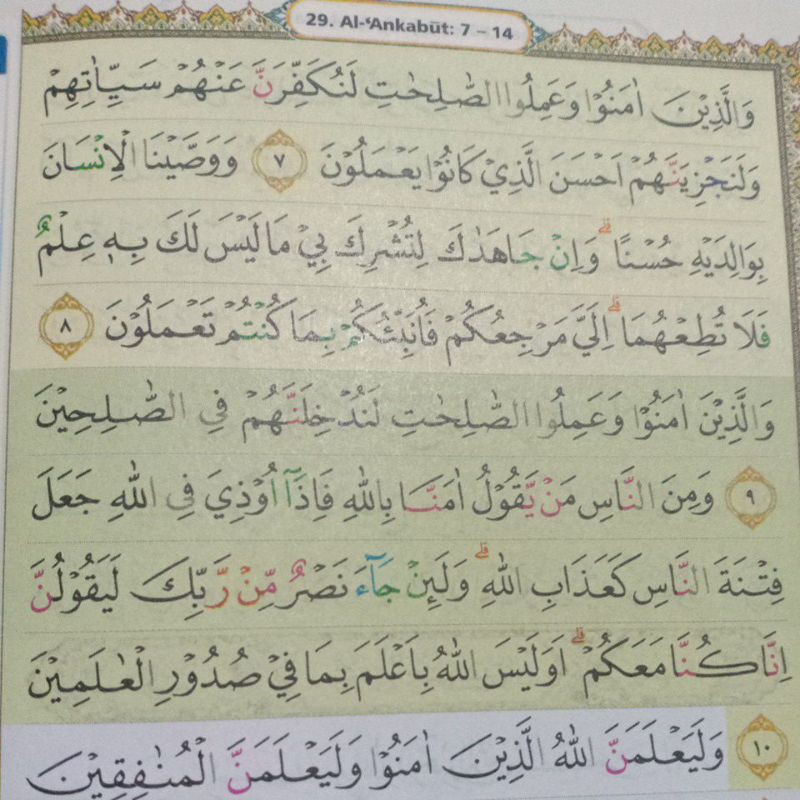 29. Al-‘Ankabūt: 7 – 14
وَالَّذِيْنَ اٰمَنُوْا وَعَمِلُوا الصّٰلِحٰتِ لَنُكَفِّرَنَّ عَنْهُمْ سَيِّاٰتِهِمْ
وَلَنَجْزِيَنَّهُمْ اَحْسَنَ الَّذِيْ كَانُوْا يَعْمَلُوْنَ ٧ وَوَصَّيْنَا الْاِنْسَانَ
بِوَالِدَيْهِ حُسْنًا ۗ وَاِنْ جَاهَدٰكَ لِتُشْرِكَ بِيْ مَا لَيْسَ لَكَ بِهٖ عِلْمٌ
فَلَا تُطِعْهُمَا ۗ اِلَيَّ مَرْجِعُكُمْ فَاُنَبِّئُكُمْ بِمَا كُنْتُمْ تَعْمَلُوْنَ ٨
وَالَّذِيْنَ اٰمَنُوْا وَعَمِلُوا الصّٰلِحٰتِ لَنُدْخِلَنَّهُمْ فِى الصّٰلِحِيْنَ
٩ وَمِنَ النَّاسِ مَنْ يَّقُوْلُ اٰمَنَّا بِاللّٰهِ فَاِذَآ اُوْذِيَ فِى اللّٰهِ جَعَلَ
فِتْنَةَ النَّاسِ كَعَذَابِ اللّٰهِ ۗ وَلَىِٕنْ جَاۤءَ نَصْرٌ مِّنْ رَّبِّكَ لَيَقُوْلُنَّ
اِنَّا كُنَّا مَعَكُمْ ۗ اَوَلَيْسَ اللّٰهُ بِاَعْلَمَ بِمَا فِيْ صُدُوْرِ الْعٰلَمِيْنَ
١٠ وَلَيَعْلَمَنَّ اللّٰهُ الَّذِيْنَ اٰمَنُوْا وَلَيَعْلَمَنَّ الْمُنٰفِقِيْنَ